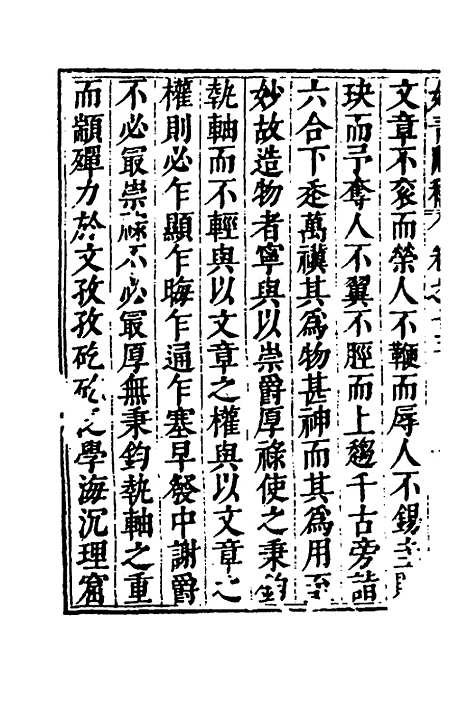 文章不袞而榮人不鞭而辱人不錫土
玦而予奪人不翼不脛而上趨千古旁詣
六合下垂萬禩其爲物甚神而其爲用至
妙故造物者寧與以崇爵厚祿使之秉鈞
執軸而不輕與以文章之權與以文章之
權則必乍顯乍晦乍通乍塞早發中謝爵
不必最崇祿不必最厚無秉鈞執軸之重
而顓殫力於文孜孜矻矻之學海沉理窟